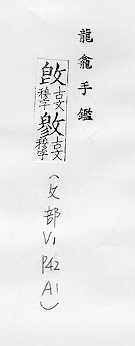 龍龕手鑑
古文穆字
古文穆字
(攵部 V1 P42 A1)